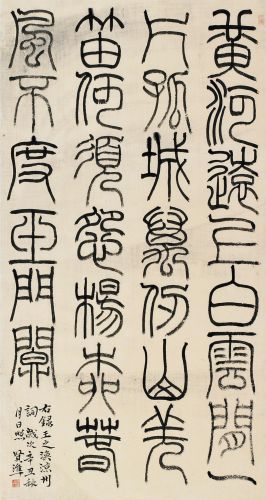 黃河遠上白雲間一
片孤城萬仞山羌
笛何須怨楊柳春
風不度玉門關
右錄王之渙涼州
詞歲次辛丑秋
月日照